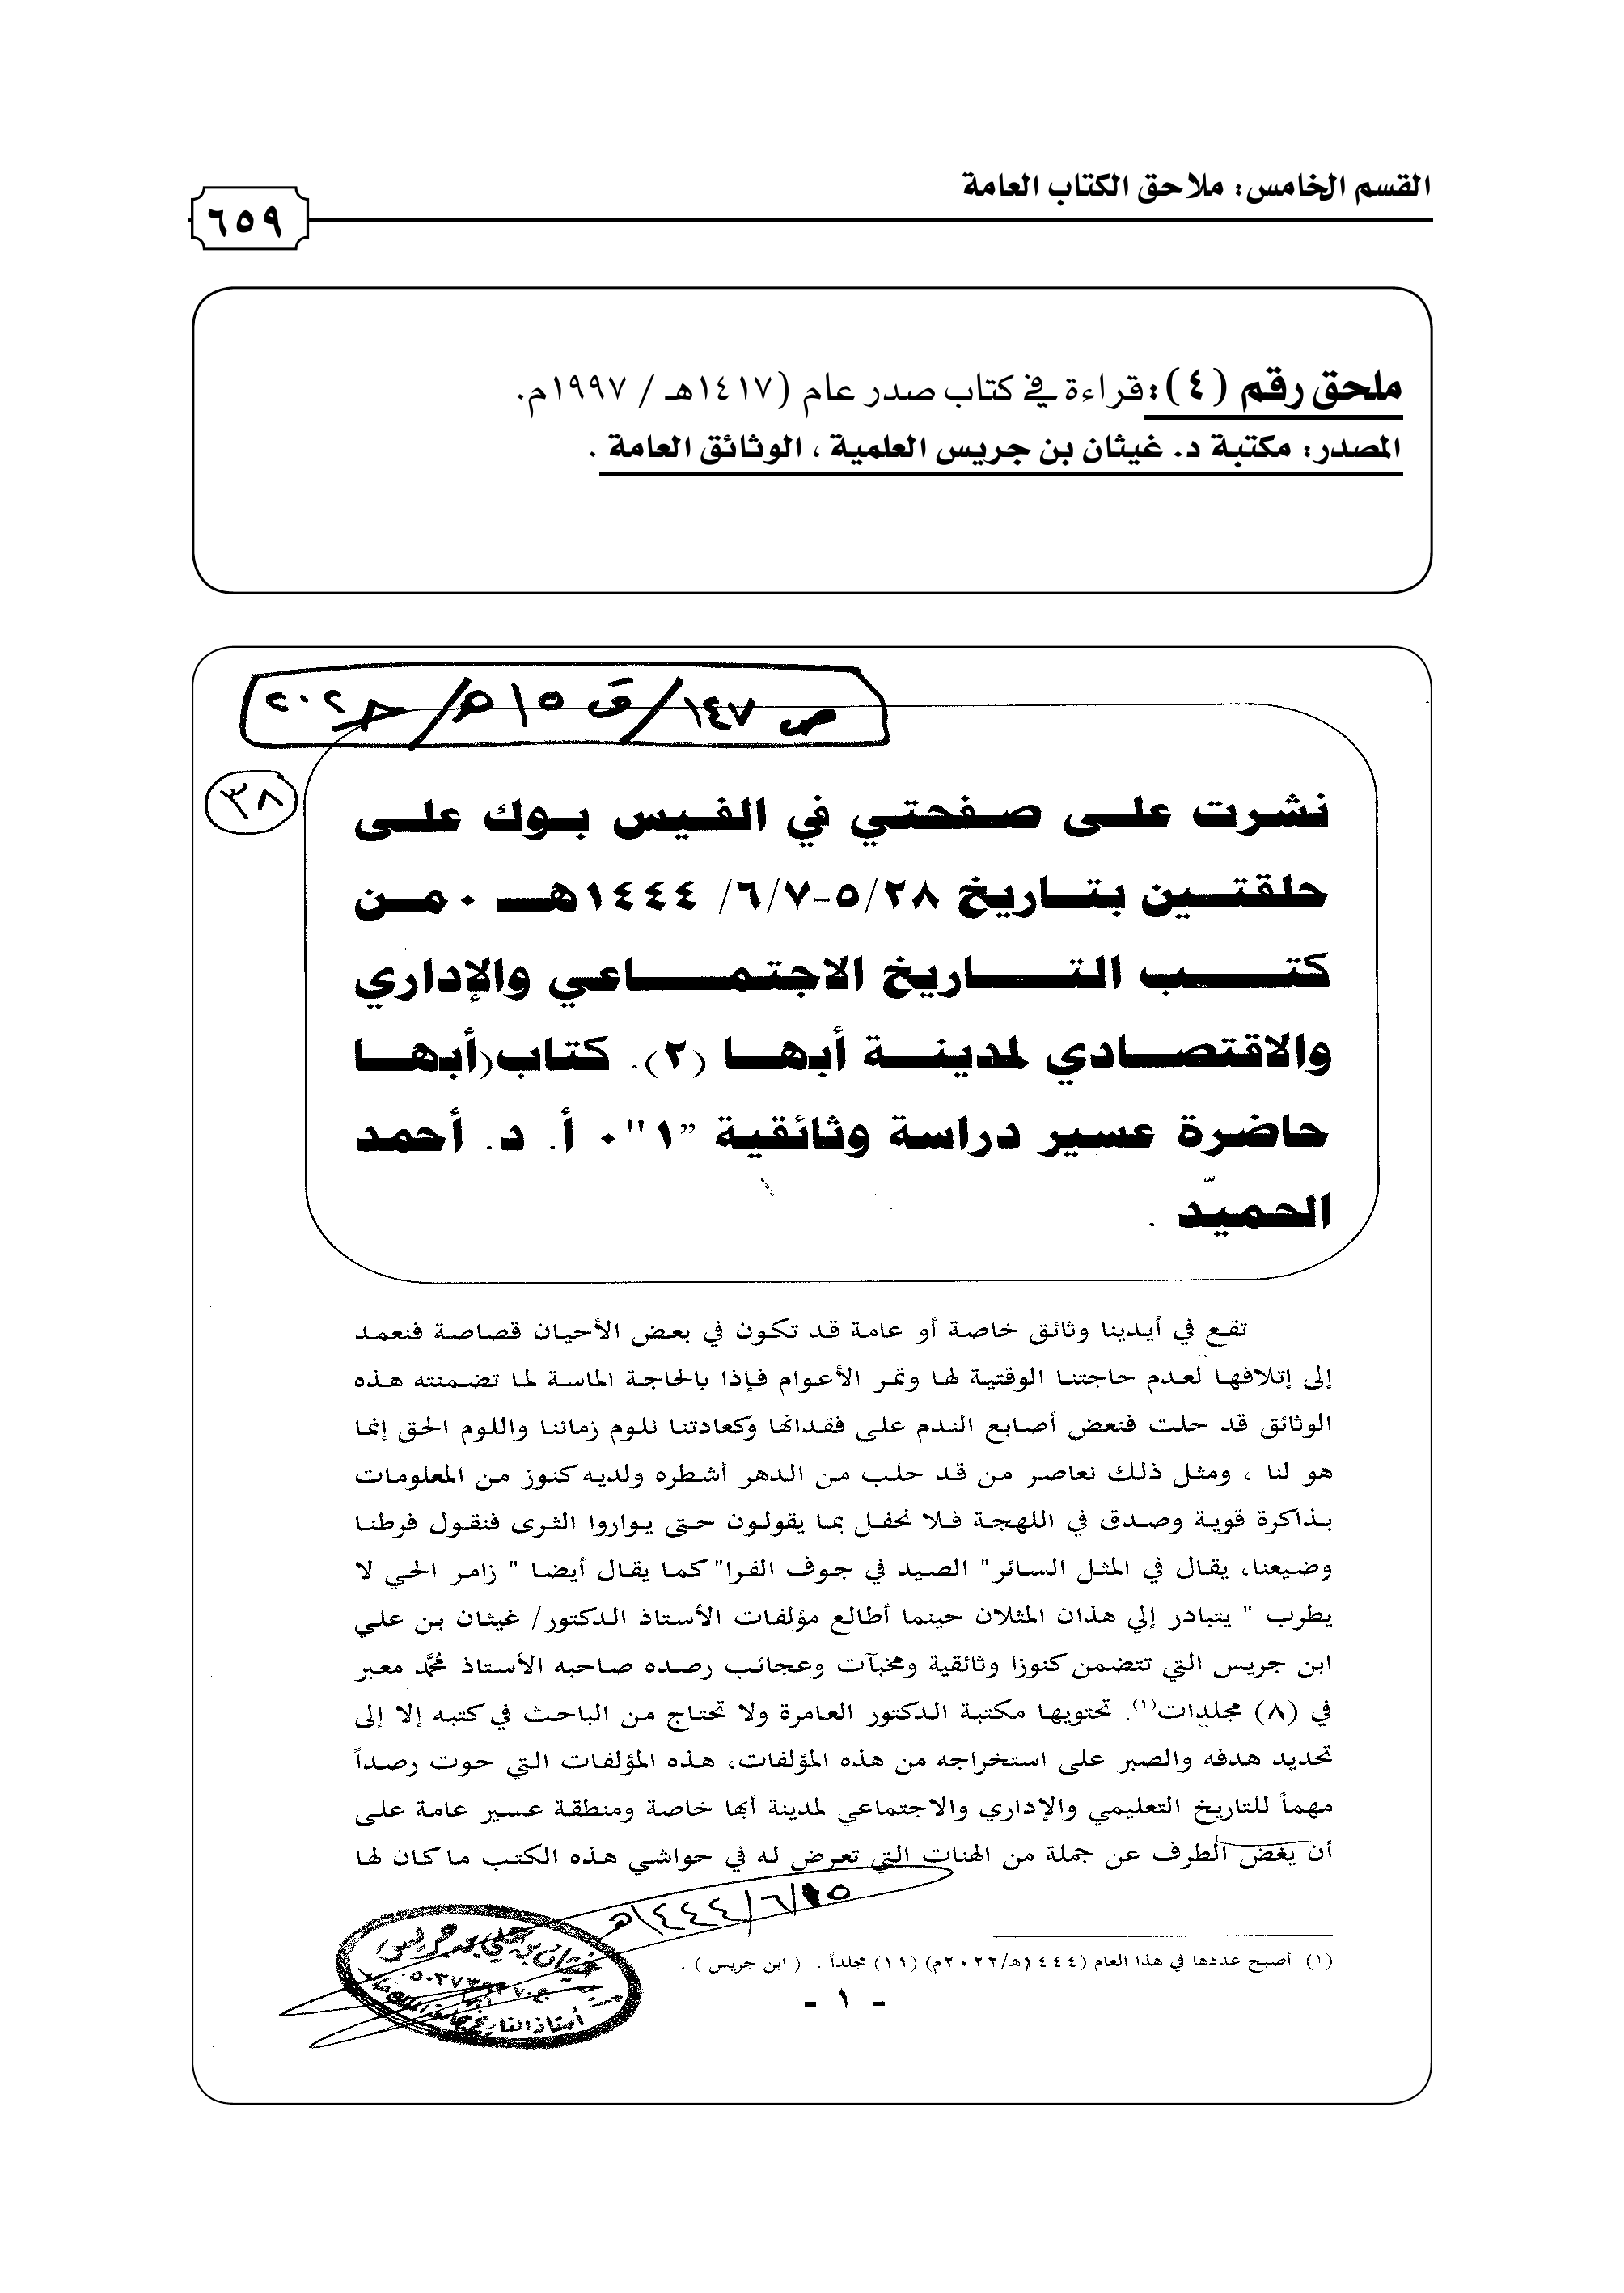 القسم الخامس: ملاحق الكتاب العامة
٦٥٩
ملحق رقم (٤): قراءة في كتاب صدر عام (١٤١٧هـ / ١٩٩٧م.
المصدر: مكتبة د. غيثان بن جريس العلمية ، الوثائق العامة .
ص ١٤٧/ق ١٥
٣٨
نشرت على صفحتي في الفيس بوك على
حلقتين بتاريخ ٥/٢٨-٦/٧/ ١٤٤٤هـ ٠ من
كتب التاريخ الاجتماعي والإداري
والاقتصادي لمدينة أبها (٢). كتاب(أبها
حاضرة عسير دراسة وثائقية "١"٠ أ. د. أحمد
الحميّد .
تقع في أيدينا وثائق خاصة أو عامة قد تكون في بعض الأحيان قصاصة فنعمد
إلى إتلافها لعدم حاجتنا الوقتية لها وتمر الأعوام فإذا بالحاجة الماسة لما تضمنته هذه
الوثائق قد حلت فنعض أصابع الندم على فقدانها وكعادتنا نلوم زماننا واللوم الحق إنما
هو لنا ، ومثل ذلك نعاصر من قد حلب من الدهر أشطره ولديه كنوز من المعلومات
بذاكرة قوية وصدق في اللهجة فلا نحفل بما يقولون حتى يواروا الثرى فنقول فرطنا
وضيعنا، يقال في المثل السائر" الصيد في جوف الفرا" كما يقال أيضا " زامر الحي لا
يطرب " يتبادر إلي هذان المثلان حينما أطالع مؤلفات الأستاذ الدكتور/ غيثان بن علي
ابن جريس التي تتضمن كنوزا وثائقية ومخبآت وعجائب رصده صاحبه الأستاذ محمَّد معبر
في (٨) مجلدات(١). تحتويها مكتبة الدكتور العامرة ولا تحتاج من الباحث في كتبه إلا إلى
تحديد هدفه والصبر على استخراجه من هذه المؤلفات، هذه المؤلفات التي حوت رصداً
مهماً للتاريخ التعليمي والإداري والاجتماعي لمدينة أبها خاصة ومنطقة عسير عامة على
أن يغض الطرف عن جملة من الهنات التي تعرض له في حواشي هذه الكتب ما كان لها
١٤٤٤/٦/١٥هـ
(١) أصبح عددها في هذا العام (١٤٤٤هـ/٢٠٢٢م) (١١) مجلداً . ( ابن جريس ) .
- ١ -
غيثان بن علي بن جريس